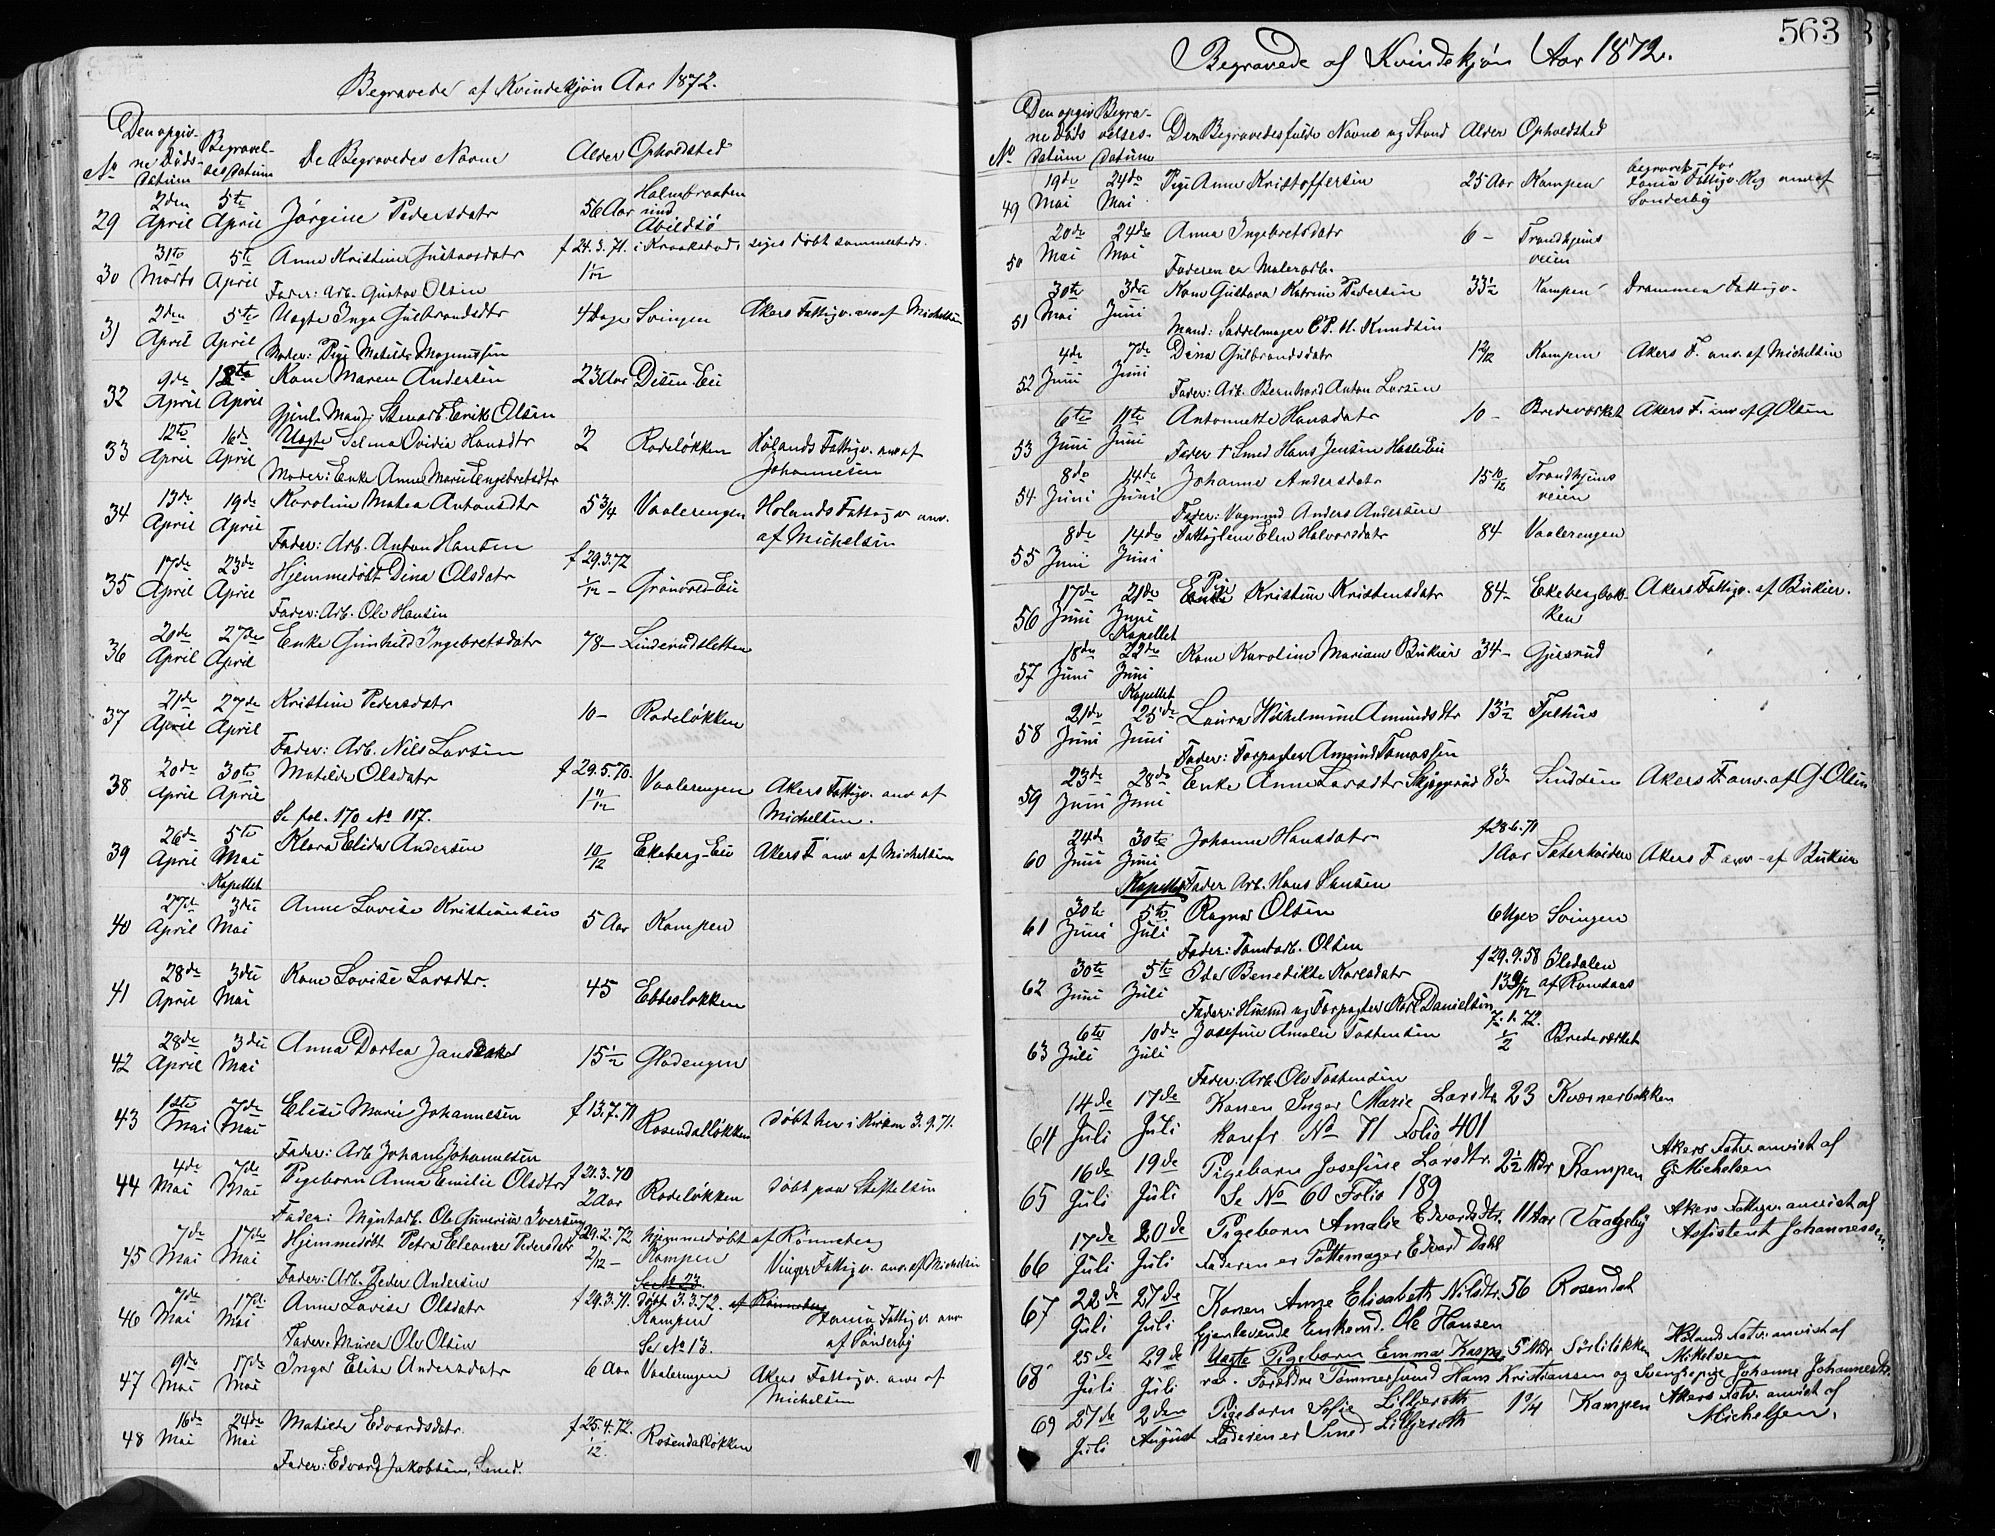 Begravede af Kvindekjøn Aar 1872.
No Den opgivne Døds-datum Begravelsesdatum De Begravedes Navne Alder Opholdsted
29 2den April 5te April Jørgine Pedersdatr 56 Aar Holmbraaten und Abildsø
30 31te Marts 5te April Anne Kristine Gustavsdatr f 24.3.71. i Kraakstad, siges døbt sammesteds.
Fader: Arb. Gustav Olsen 1 1/12
31 2den April 5te April Uægte Inga Gulbrandsdtr 4 Dage Svingen Akers Fattigv. anv. af Michelsen
Moder: Pige Matilde Magnussen
32 9de April 18te April Kone Maren Andersen 23 Aar Disen Eie
Gjenl. Mand: Stenarb. Erik Olsen
33 12te April 16de April Uægte Selma Ovidia Hansdtr 2 Rodeløkken Hølands Fattigv. anv af Johannesen
Moder: Enke Anne Marie Engebretsdtr
34 13de April 19de April Karoline Matea Antonsdtr 5 3/4 Vaalerengen Hølands Fattigv anv. af Michelsen
Fader: Arb. Anton Hansen
35 17de April 23de April Hjemmedøbt Dina Olsdatr f 29.3.72 1/12 - Grønvold Eie
Fader: Arb. Ole Hansen
36 20de April 27de April Enke Gunhild Ingebretsdatr 78 - Linderudsletten
37 21de April 27de April Kristine Pedersdatr 10 - Rodeløkken
Fader: Arb. Nils Larsen
38 20de April 30te April Matilde Olsdatr f 29.5.70. 1 11/12 Vaalerengen Akers Fattigv. anv af Michelsen.
Se fol. 170 No 117.
39 26de April 5te Mai Klara Elida Andersen 10/12 Ekeberg-Eie Akers F anv af Michelsen
Kapellet
40 27de April 3die Mai Anne Lovise Kristiansen 5 Aar Kampen
41 28de April 3die Mai Kone Lovise Larsdtr. 45 Ebbesløkken
42 28de April 3die Mai Anna Dortea Jans 15 1/2 Gladengen
43 1ste Mai 7de Mai Elise Marie Johannesen f 13.7.71 Rosendalløkken Døbt her i Kirken 3.9.71.
Fader: Arb Johan Johannesen
44 4de Mai 7de Mai Pigebarn Anna Emilie Olsdtr f 21.3.70 2 Aar Rodeløkken Døbt paa Stiftelsen
Fader: Myntarb. Ole Iversen
45 7de Mai 17de Mai Hjemmedøbt Petra Eleonore Pedersdtr f 29.2.72 hjemmedøbt af Rønneberg
2/12 - Kampen Vinger Fattigv. anv. af Michelsen
Fader: Arb. Peder Andersen
46 7de Mai 17de Mai Anne Lovise Olsdatr f 29.3.71. Døbt 3.3.72. af Rønneberg
Kampen Fattigv anv af Sønderby
Fader: Murer Ole Olsen Se No 13.
47 9de Mai 17de Mai Inga Elise Andersdatr 6 Aar Vaalerengen Akers Fattigv. anv af Michelsen
48 16de Mai 24de Mai Matilde Edvardsdatr. f 25.4.72. 1/12. Rosendalløkken
Fader: Edvard Jakobsen, Smed.
563
Begravede af Kvindekjøn Aar 1872.
No Den opgivne Døds datum Begravelses-datum Den Begravedes fulde Navne og Stand Alder Opholdsted
49 19de Mai 24de Mai Pige Anne Kristoffersen 25 Aar Kampen begravet for Fattigv. Reg anv af Sønderby
50 20de Mai 24de Mai Anna Ingebretsdatr 6 - Trondhjems veien
Faderen er Malerarb.
51 30te Mai 3die Juni Kone Gustava Katrine Pedersen 33 1/2 Kampen Drammen Fattigv.
Mand: Saddelmager C. P. H. Knudsen
52 4de Juni 7de Juni Dina Gulbrandsdatr Kampen Akers F. anv. af Michelsen
Fader: Arb. Bernhard Anton Larsen
53 6te Juni 11te Juni Antonette Hansdatr 10 - Bredeverket Akers F. anv af G Olsen
Fader † Smed Hans Jensen Hasle Eie
54 8de Juni 14de Juni Johanne Andersdatr 15 10/12 Trondhjems veien
Fader: Vognmd Anders Andersen
55 8de Juni 14de Juni Fattiglem Elen Halvorsdatr 84 Vaalerengen
56 17de Juni 21de Juni Pige Kristine Kristensdatr 84 - Ekebergbakken Akers Fattigv. af Bükier.
Kapellet
57 18de Juni 22de Juni Kone Karoline Mariane Bükier 34 - Gjesrud
Kapellet
58 21de Juni 25de Juni Laura Wilhelmine Amundsdtr 13 1/2 Tjelhus
Fader: Forpagter Amund Tomassen
59 23de Juni 28de Juni Enke Anne Larsdtr Skjeggerud 83 - Sindsen Akers F anv. af G. Olsen
60 24de Juni 30te Juni Johanne Hansdatr f 28.6.71 1 Aar Sæterheiden Akers F anv - af Bükier
Kapellet Fader Arb. Hans Hansen
61 30te Juni 5te Juli Ragna Olsen 6 Uger Svingen
Fader: Tomtarb. Olsen
62 30te Juni 5te Juli Oda Benedikte Karlsdatr f 29.9.58 13 9/12 Øledalen af Romsaas
Fader: Husmd og Forpagter Karl Danielsen
63 6te Juli 10de Juli Josefine Amalie Tostensen 7.1.72. 1/2 Bredeverket
Fader: Arb. Ole Tostensen
64 14de Juli 17de Juli Konen Inger Marie Larsdtr 23 Kværnerbakken
konfr No 71 Folio 401
65 16de Juli 19de Juli Pigebarn Josefine Larsdtr. 2 1/2 Mdr Kampen Akers Fatv. anvist af G Michelsen
Se No 60 Folio 189
66 17de Juli 20de Juli Pigebarn Amalie Edvardsdtr. 11 Aar Vaageby Akers Fattigv. anvist af Assistent Johannessen.
Faderen er Pottemager Edvard Dahl
67 22de Juli 27de Juli Konen Anne Elisabeth Nilsdtr. 56 Rosendal
Gjenlevende Enkemd. Ole Hansen
68 25de Juli 29de Juli Uægte Pigebarn Emma Kaspa 5 Mdr Sørliløkken Hølands Fatv. anvist af Mikelsen
ra. Forældre Tømmersvend Hans Kristiansen og Svenskepige Johanne Johannesdtr.
69 27de Juli 2den August Pigebarn Sofie Lilljeroth 1 3/4 Kampen Akers Fatv. anvist af Michelsen.
Faderen er Smed Lilljeroth